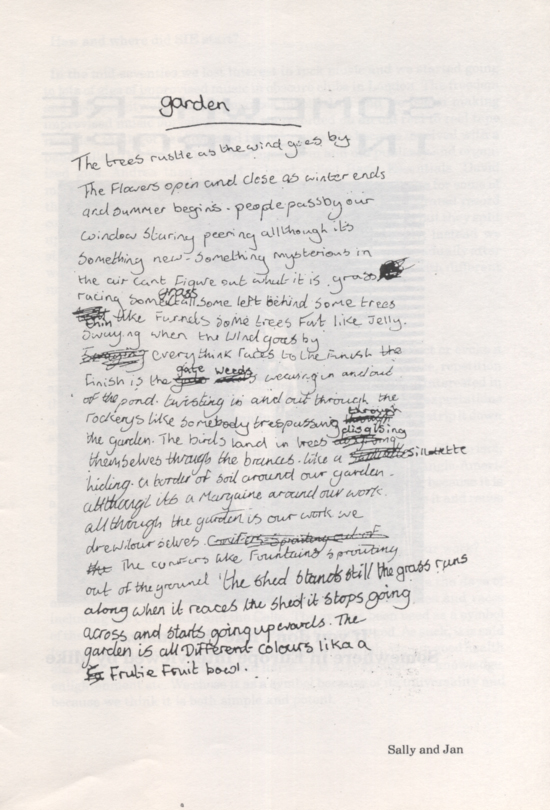 garden
The trees rustle as the wind goes by
The Flowers open and close as winter ends
and summer begins. people pass by our
window Staring peering allthough it's
Something new - Something mysterious in
the air cant Figure out what it is. grass
racing Some grass tall Some left behind Some trees
thin like Funnels some trees Fat like Jelly.
Swaying when the wind goes by
everythink races to the Finish the
Finish is the gate weeds weaving in and out
of the pond. twisting in and out through the
rockerys like somebody trespassing through
the garden. The birds land in trees disgising
themselves through the brances. like a Sillotette
hiding. a border of soil around our garden.
allthough its a Margaine around our work.
allthough the garden is our work we
drew ourselves.
The conifers like Fountains sprouting
out of the ground 'the shed stands still the grass runs
along when it reaces the shed it stops going
across and starts going upwards. The
garden is all Different colours like a
Frutie Fruit bowl.
Sally and Jan